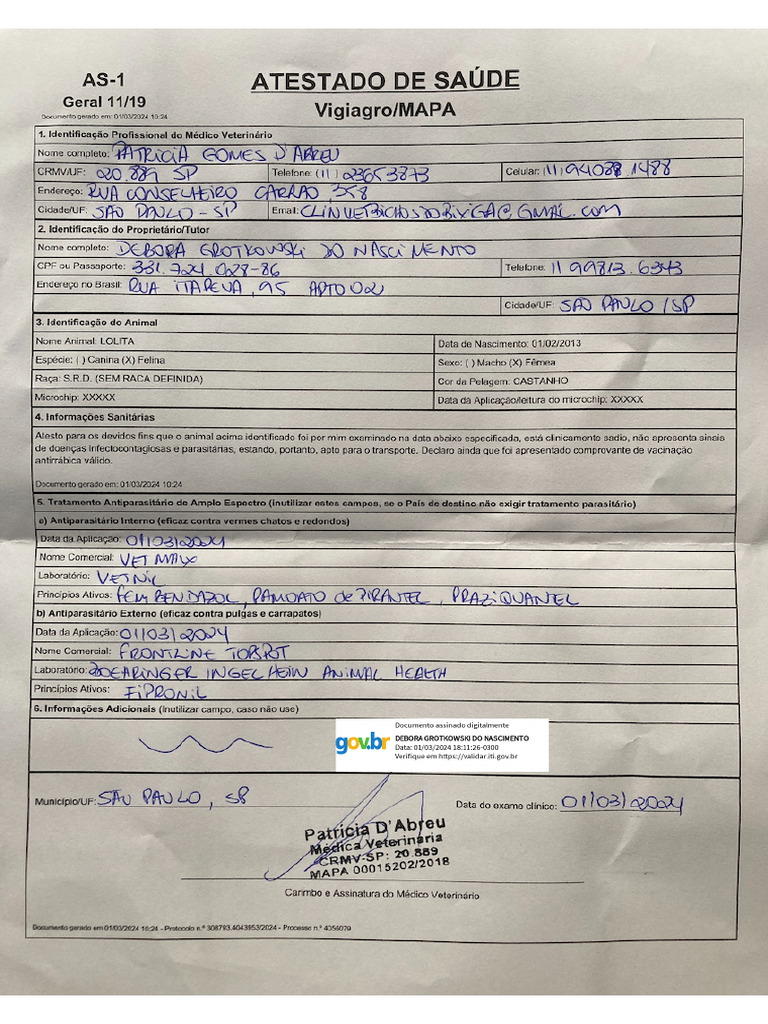 AS-1
Geral 11/19
Documento gerado em: 01/03/2024 10:24
ATESTADO DE SAÚDE
Vigiagro/MAPA
1. Identificação Profissional do Médico Veterinário
Nome completo: PATRICIA GOMES D'ABREU
CRMV/UF: 20.889 SP Telefone: (11) 23653873 Celular: (11) 94088.1488
Endereço: RUA CONSELHEIRO CARRÃO, 358
Cidade/UF: SÃO PAULO - SP Email: CLINVETBICHOSDOBIXIGA@GMAIL.COM
2. Identificação do Proprietário/Tutor
Nome completo: DEBORA GROTKOWSKI DO NASCIMENTO
CPF ou Passaporte: 331.724.028-86 Telefone: 11 99813.6343
Endereço no Brasil: RUA ITAPEVA, 95 APTO
Cidade/UF: SÃO PAULO /SP
3. Identificação do Animal
Nome Animal: LOLITA Data de Nascimento: 01/02/2013
Espécie: ( ) Canina (X) Felina Sexo: ( ) Macho (X) Fêmea
Raça: S.R.D. (SEM RACA DEFINIDA) Cor da Pelagem: CASTANHO
Microchip: XXXXX Data da Aplicação/leitura do microchip: XXXXX
4. Informações Sanitárias
Atesto para os devidos fins que o animal acima identificado foi por mim examinado na data abaixo especificada, está clinicamente sadio, não apresenta sinais
de doenças infectocontagiosas e parasitárias, estando, portanto, apto para o transporte. Declaro ainda que foi apresentado comprovante de vacinação
antirrábica válido.
Documento gerado em: 01/03/2024 10:24
5. Tratamento Antiparasitário de Amplo Espectro (inutilizar estes campos, se o País de destino não exigir tratamento parasitário)
a) Antiparasitário Interno (eficaz contra vermes chatos e redondos)
Data da Aplicação: 01/03/2024
Nome Comercial: VETMAX
Laboratório: VETNIL
Princípios Ativos: FEMBENDAZOL, PAMOATO de PIRANTEL, PRAZIQUANTEL
b) Antiparasitário Externo (eficaz contra pulgas e carrapatos)
Data da Aplicação: 01/03/2024
Nome Comercial: FRONTLINE TOPSPOT
Laboratório: BOEHRINGER INGELHEIN ANIMAL HEALTH
Princípios Ativos: FIPRONIL
6. Informações Adicionais (Inutilizar campo, caso não use)
gov.br
Documento assinado digitalmente
DEBORA GROTKOWSKI DO NASCIMENTO
Data: 01/03/2024 18:11:26-0300
Verifique em https://validar.iti.gov.br
Município/UF: SÃO PAULO, SP Data do exame clínico: 01/03/2024
Patrícia D'Abreu
Médica Veterinária
CRMV-SP: 20.889
MAPA 00015202/2018
Carimbo e Assinatura do Médico Veterinário
Documento gerado em 01/03/2024 10:24 - Protocolo n.º 308793.4043953/2024 - Processo n.º 4056079